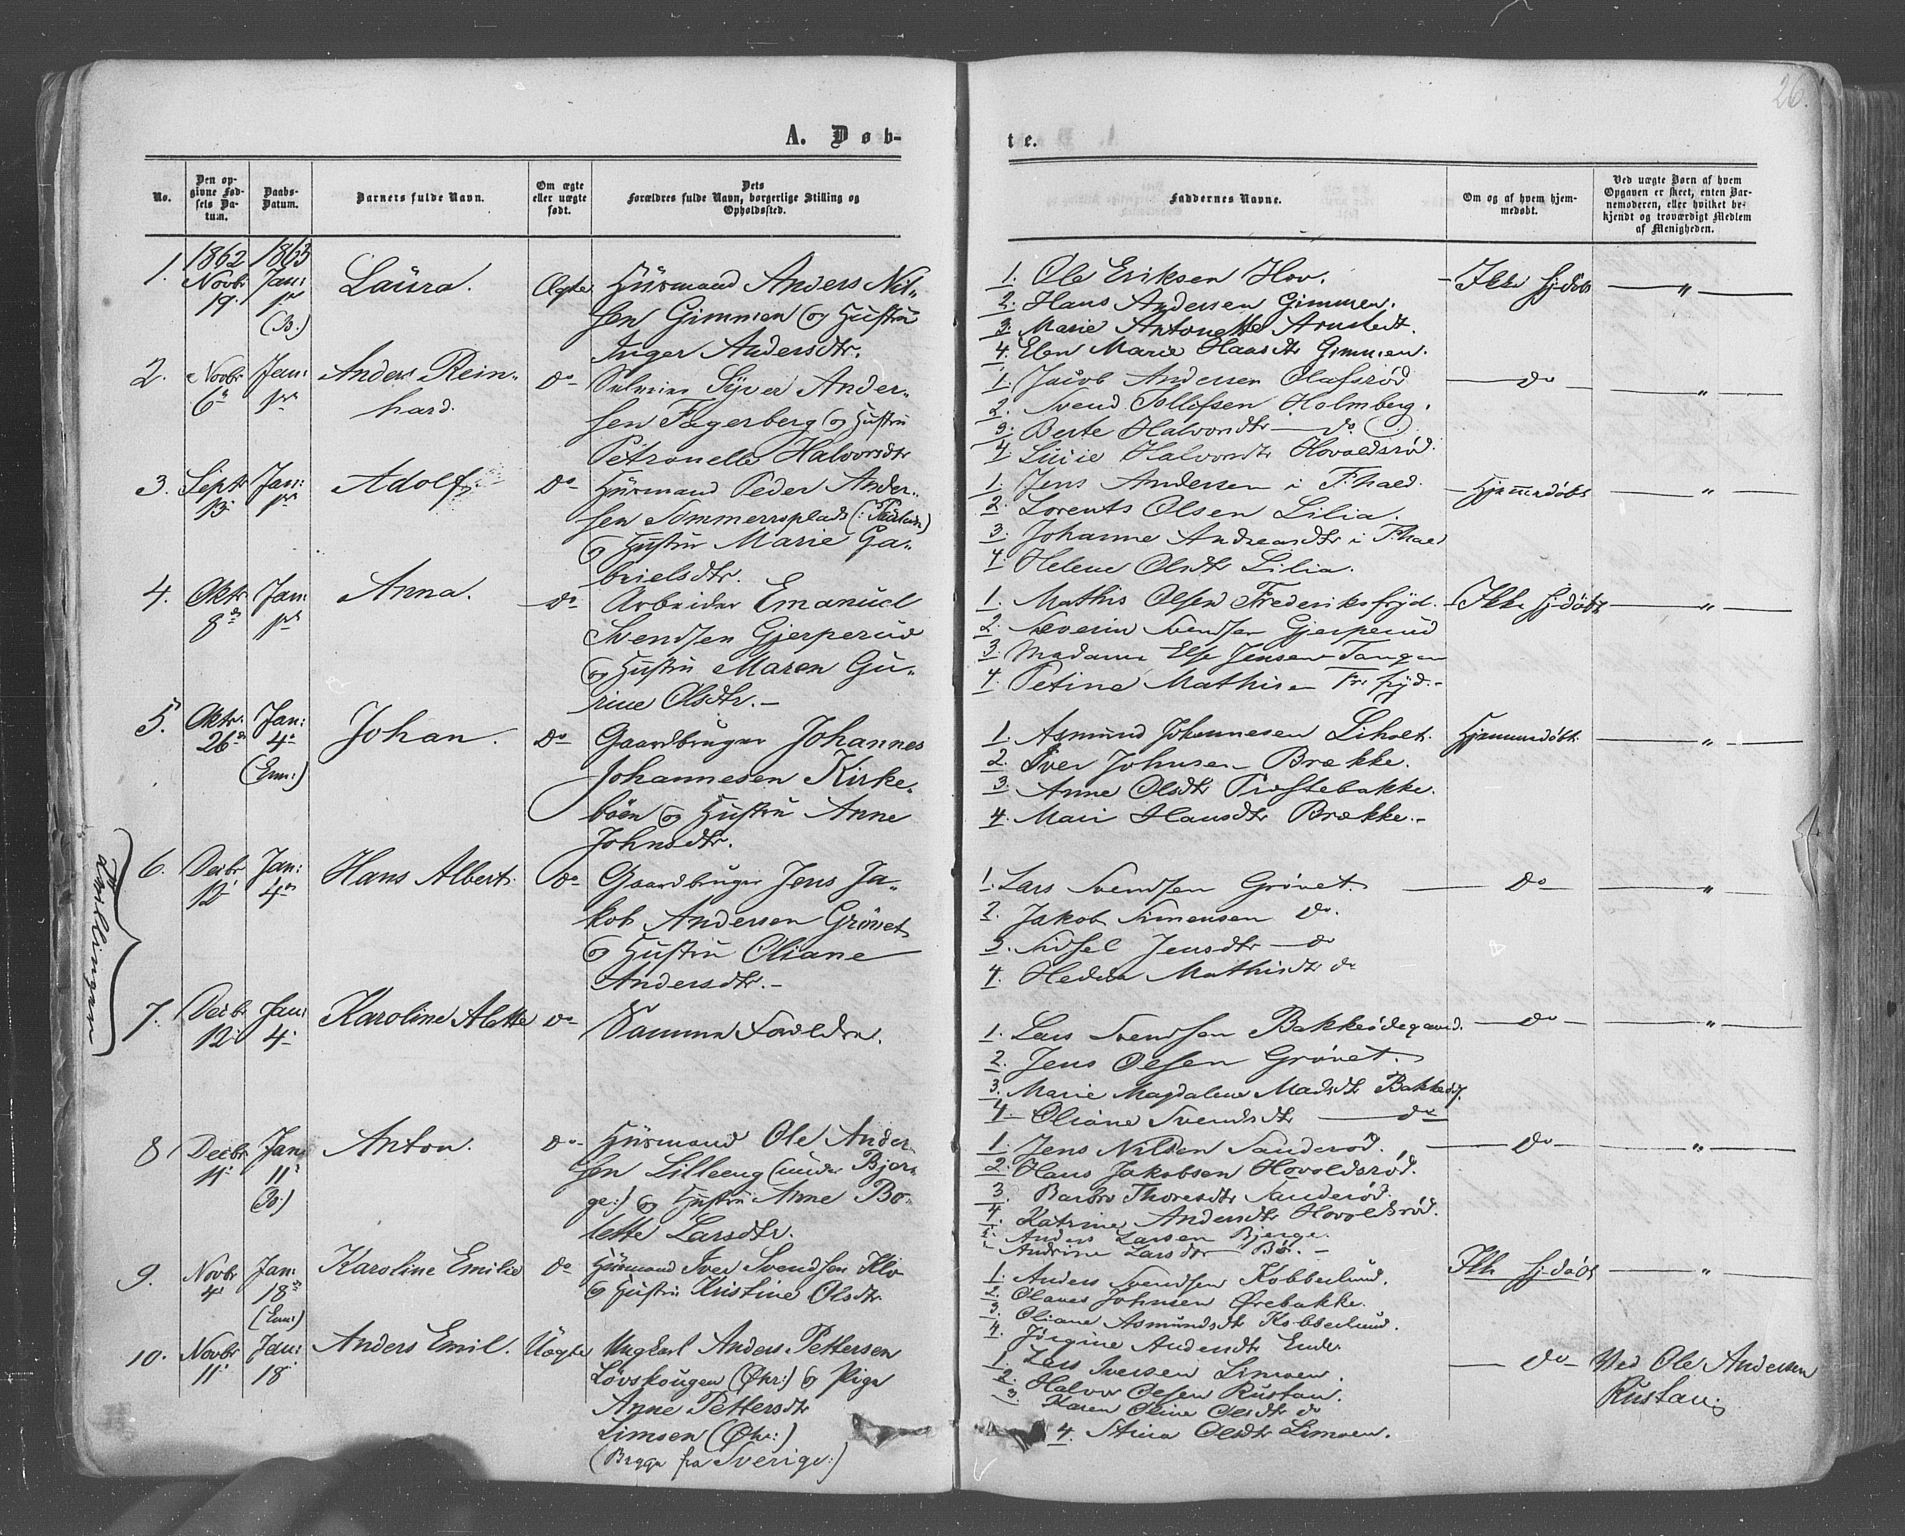 26.
A. Døb-
te.
No.
Den op-
givne Fød-
sels Da-
tum.
Daabs-
Datum.
Barnets fulde Navn.
Om ægte
eller uægte
født.
Dets
Forældres fulde Navn, borgerlige Stilling og
Opholdssted.
Faddernes Navne.
Om og af hvem hjem-
medøbt.
Ved uægte Børn af hvem
Opgaven er skeet, enten Bar-
nemoderen, eller hvilket be-
kjendt og troværdigt Medlem
af Menigheden.
1862 1863
1. Novbr 19. Jan: 1ste (B.) Laura. Ægte
Huusmand Anders Nil-
sen Gimmen og Hustru
Inger Andersdtr.
1. Ole Eriksen Hov.
2. Hans Andersen Gimmen.
3. Marie Antonette Arnstedt.
4. Elen Marie Hansdtr Gimmen.
Ikke hj.døbt "
2. Novbr 6te Jan: 1ste Anders Rein-
hard. Do
Syver Ander-
sen Fagerberg og Hustru
Petronelle Halvorsdtr
1. Jacob Andersen Olafsrød
2. Svend Tollefsen Holmberg.
3. Berte Halvorsdtr do
4. Lucie Halvorsdtr Hovoldsrød.
do "
3. Septr 13 Jan: 1ste Adolf. Do
Huusmand Peder Ander-
sen Sommerroplads
og Hustru Marie Ga-
brielsdtr.
1. Jens Andersen i F.hald.
2. Lorents Olsen Lilia.
3. Johanne Andreasdtr i F.hald
4. Helene Olsdtr Lilia.
Hjemmedøbt "
4. Oktr 8de Jan: 1ste Anna. do
Arbeider Emanuel
Svendsen Gjerperud
og Hustru Maren Gu-
rine Olsdtr.-
1. Mathis Olsen Frederiksfryd.
2. Severin Svendsen Gjerperud
3. Madame Else Jensen Tangen
4. Petine Mathisen Fr. fryd.-
Ikke hj.døbt "
5. Oktr. 26de Jan: 4de (Enn:) Johan. Do
Gaardbruger Johannes
Johannesen Kirke-
böen og Hustru Anne
Johnsdtr.
1. Asmund Johannesen Liholt.
2. Iver Johnsen Brække.
3. Anne Olsdtr Præstebakke.
4. Mari Hansdtr Brække.-
Hjemmedøbt "
Tvillinger
6. Decbr 12 Jan: 4de Hans Albert. Do
Gaardbruger Jens Ja-
kob Andersen Grönet
og Hustru Oliane
Andersdtr.-
1. Lars Svendsen Grönet.
2. Jakob Simensen do.
3. Sidsel Jensdtr do
4. Hedda Mathisdtr do
Do "
7. Decbr 12 Jan: 4. Karoline Alette do
Samme Forældre.
1. Lars Svendsen Bakkeödegaard.
2. Jens Olsen Grönet.
3. Marie Magdalene Madsdtr Bakkeödg.
4. Oliane Svendsdtr do
do "
8 Decbr 11. Jan: 11. (B.) Anton. do
Huusmand Ole Ander-
sen Lilleeng (under Bjer-
ge:) og Hustru Anne Bo-
lette Larsdtr.
1. Jens Nilsen Sanderød.
2. Hans Jakobsen Hovoldsrød.
3. Barbro Thoresdtr Sanderød.
4. Katrine Andersdtr Hovoldsrød.
Anders Larsen Bjerge.
Andrine Larsdtr Bö.
Do "
9. Novbr 4. Jan: 18de (Enn:) Karoline Emilie do
Huusmand Iver Svendsen
og Hustru Kristine Olsdtr
1. Anders Svendsen Kobberlund.
2. Olaves Johnsen Ørebakke.
3. Oliane Asmundsdtr Kobberlund.
4. Jørgine Andersdtr
Ikke hj.døbt "
10. Novbr 11. Jan: 18 Anders Emil. Uægte
Ungkarl Anders Pettersen
Lövskougen og Pige
Anne Pettersdtr
Limoen
(Begge fra Sverige:)
1. Lars Iversen Limoen.
2. Halvor Olsen Rustan.
3. Karen Oline Olsdtr do
4. Stina Olsdtr Limoen.
do
Ved Ole Andersen
Rustan.